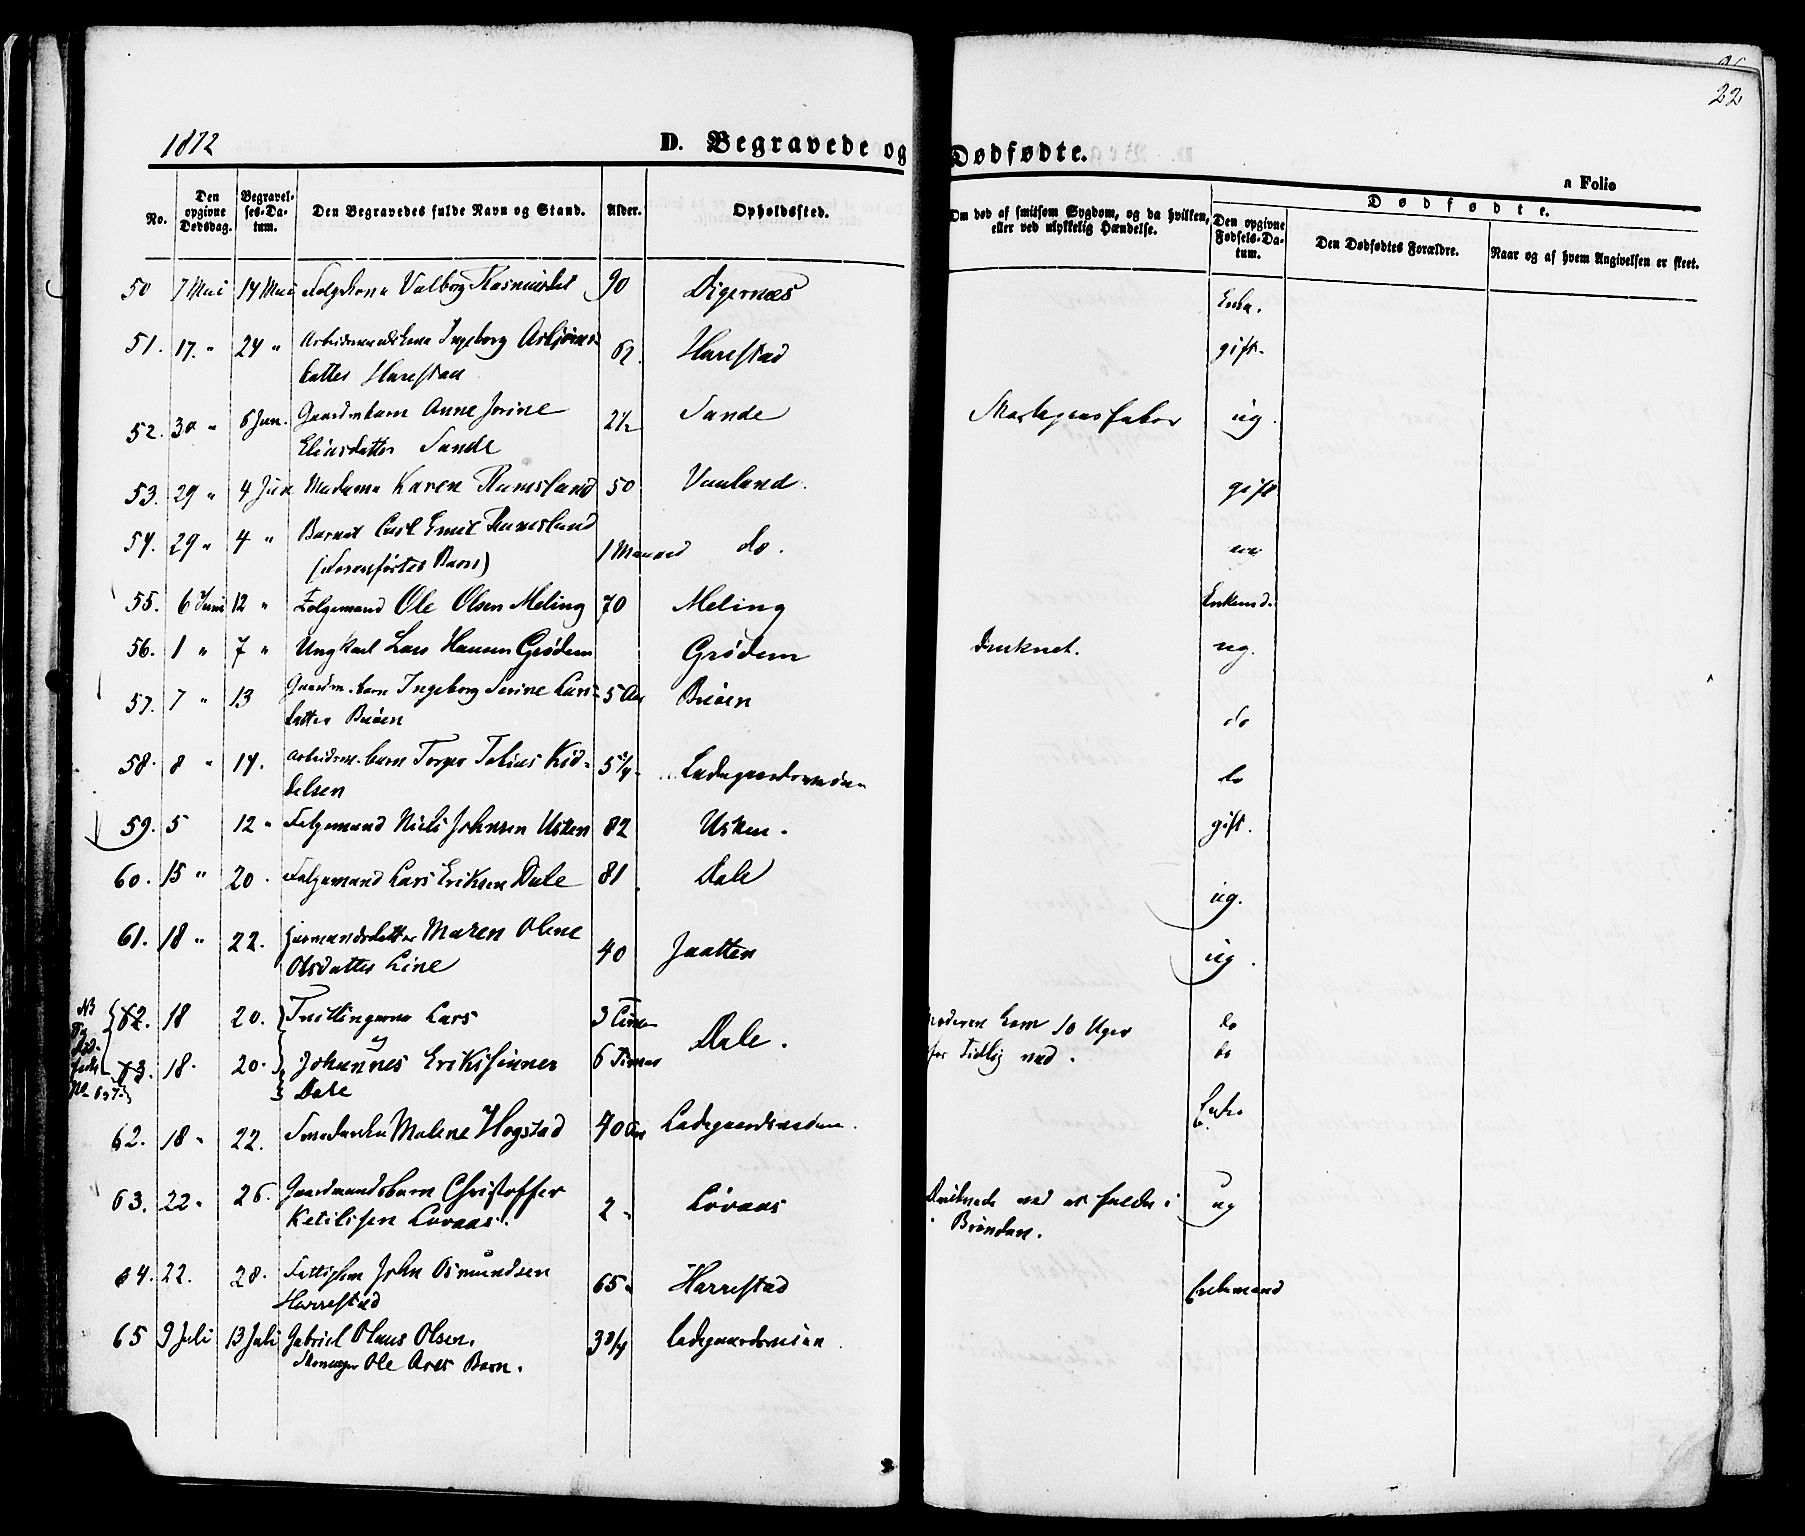 22
1872
D. Begravede og Dødfødte.
a Folio
No.
Den opgivne Dødsdag.
Begravelses-Datum.
Den Begravedes fulde Navn og Stand.
Alder.
Opholdssted.
Om død af smitsom Sygdom, og da hvilken, eller ved ulykkelig Hændelse.
Dødfødte.
Den opgivne Fødsels-Datum.
Den Dødfødtes Forældre.
Naar og af hvem Angivelsen er skeet.
50 7 Mai 14 Mai Folgekone Valborg 90 Digernæs Enke.
51. 17. " 24 " Arbeidsmandskone Ingeborg Asbjørns- 62. Harestad gift.
datter Harestad
52. 30 " 6 Jun. Gaardm barn Anne Jorine 2½ Sande ug.
Eliasdatter Sande
53. 29 " 4 Jun Madame Karen Ramsland 50 Vauland. gift
54. 29 " 4 " Barnet Carl Emil Ramsland 1 Maaned do. ug
(Foranførtes Barn)
55. 6 Juni 12 " Folgemand Ole Olsen Meling 70 Meling Enkemd.
56. 1 " 7 " Ungkarl Lars Hansen Grødem Grødem Druknet. ug.
57. 7 " 13 Gaardm. barn Ingeborg Serine Lars- 5 Aar Buøen do
datter Buøen
58. 8 " 14. Arbeidsm. barn Torger Tobias Kid- 5¾ Ladegaardsveien do
delsen
59. 5 12 " Folgemand Niels Johnsen Usken 82 Usken. gift.
60. 15 " 20. Folgemand Lars Eriksen Dale 81 Dale ug.
61. 18 " 22. Huusmandsdatter Maren Oline 40 Jaatten ug.
Olsdatter Line
NB
62. 18 20. Tvillingerne Lars 3 Timer Dale. Moderen kom 10 Uger do
og
63. 18. 20. Johannes Erikssønner 6 Timer for Tidlig ned. do
Dale
62. 18 " 22. Smedenke Malene Hogstad 70 Aar Ladegaardsveien. Enke
63. 22 " 26. Gaardmandsbarn Christoffer 2 " Lovaas Druknede ved at falde i ug
Ketilssen Lovaas. Brønden.
64. 22. 28. Fattiglem John Osmundsen 65 " Harrestad Enkemand
Harrestad
65 9 Juli 13 Juli Gabriel Olaus Olsen. 3¾ Ladegaardsveien
Skomager Ole Barn.